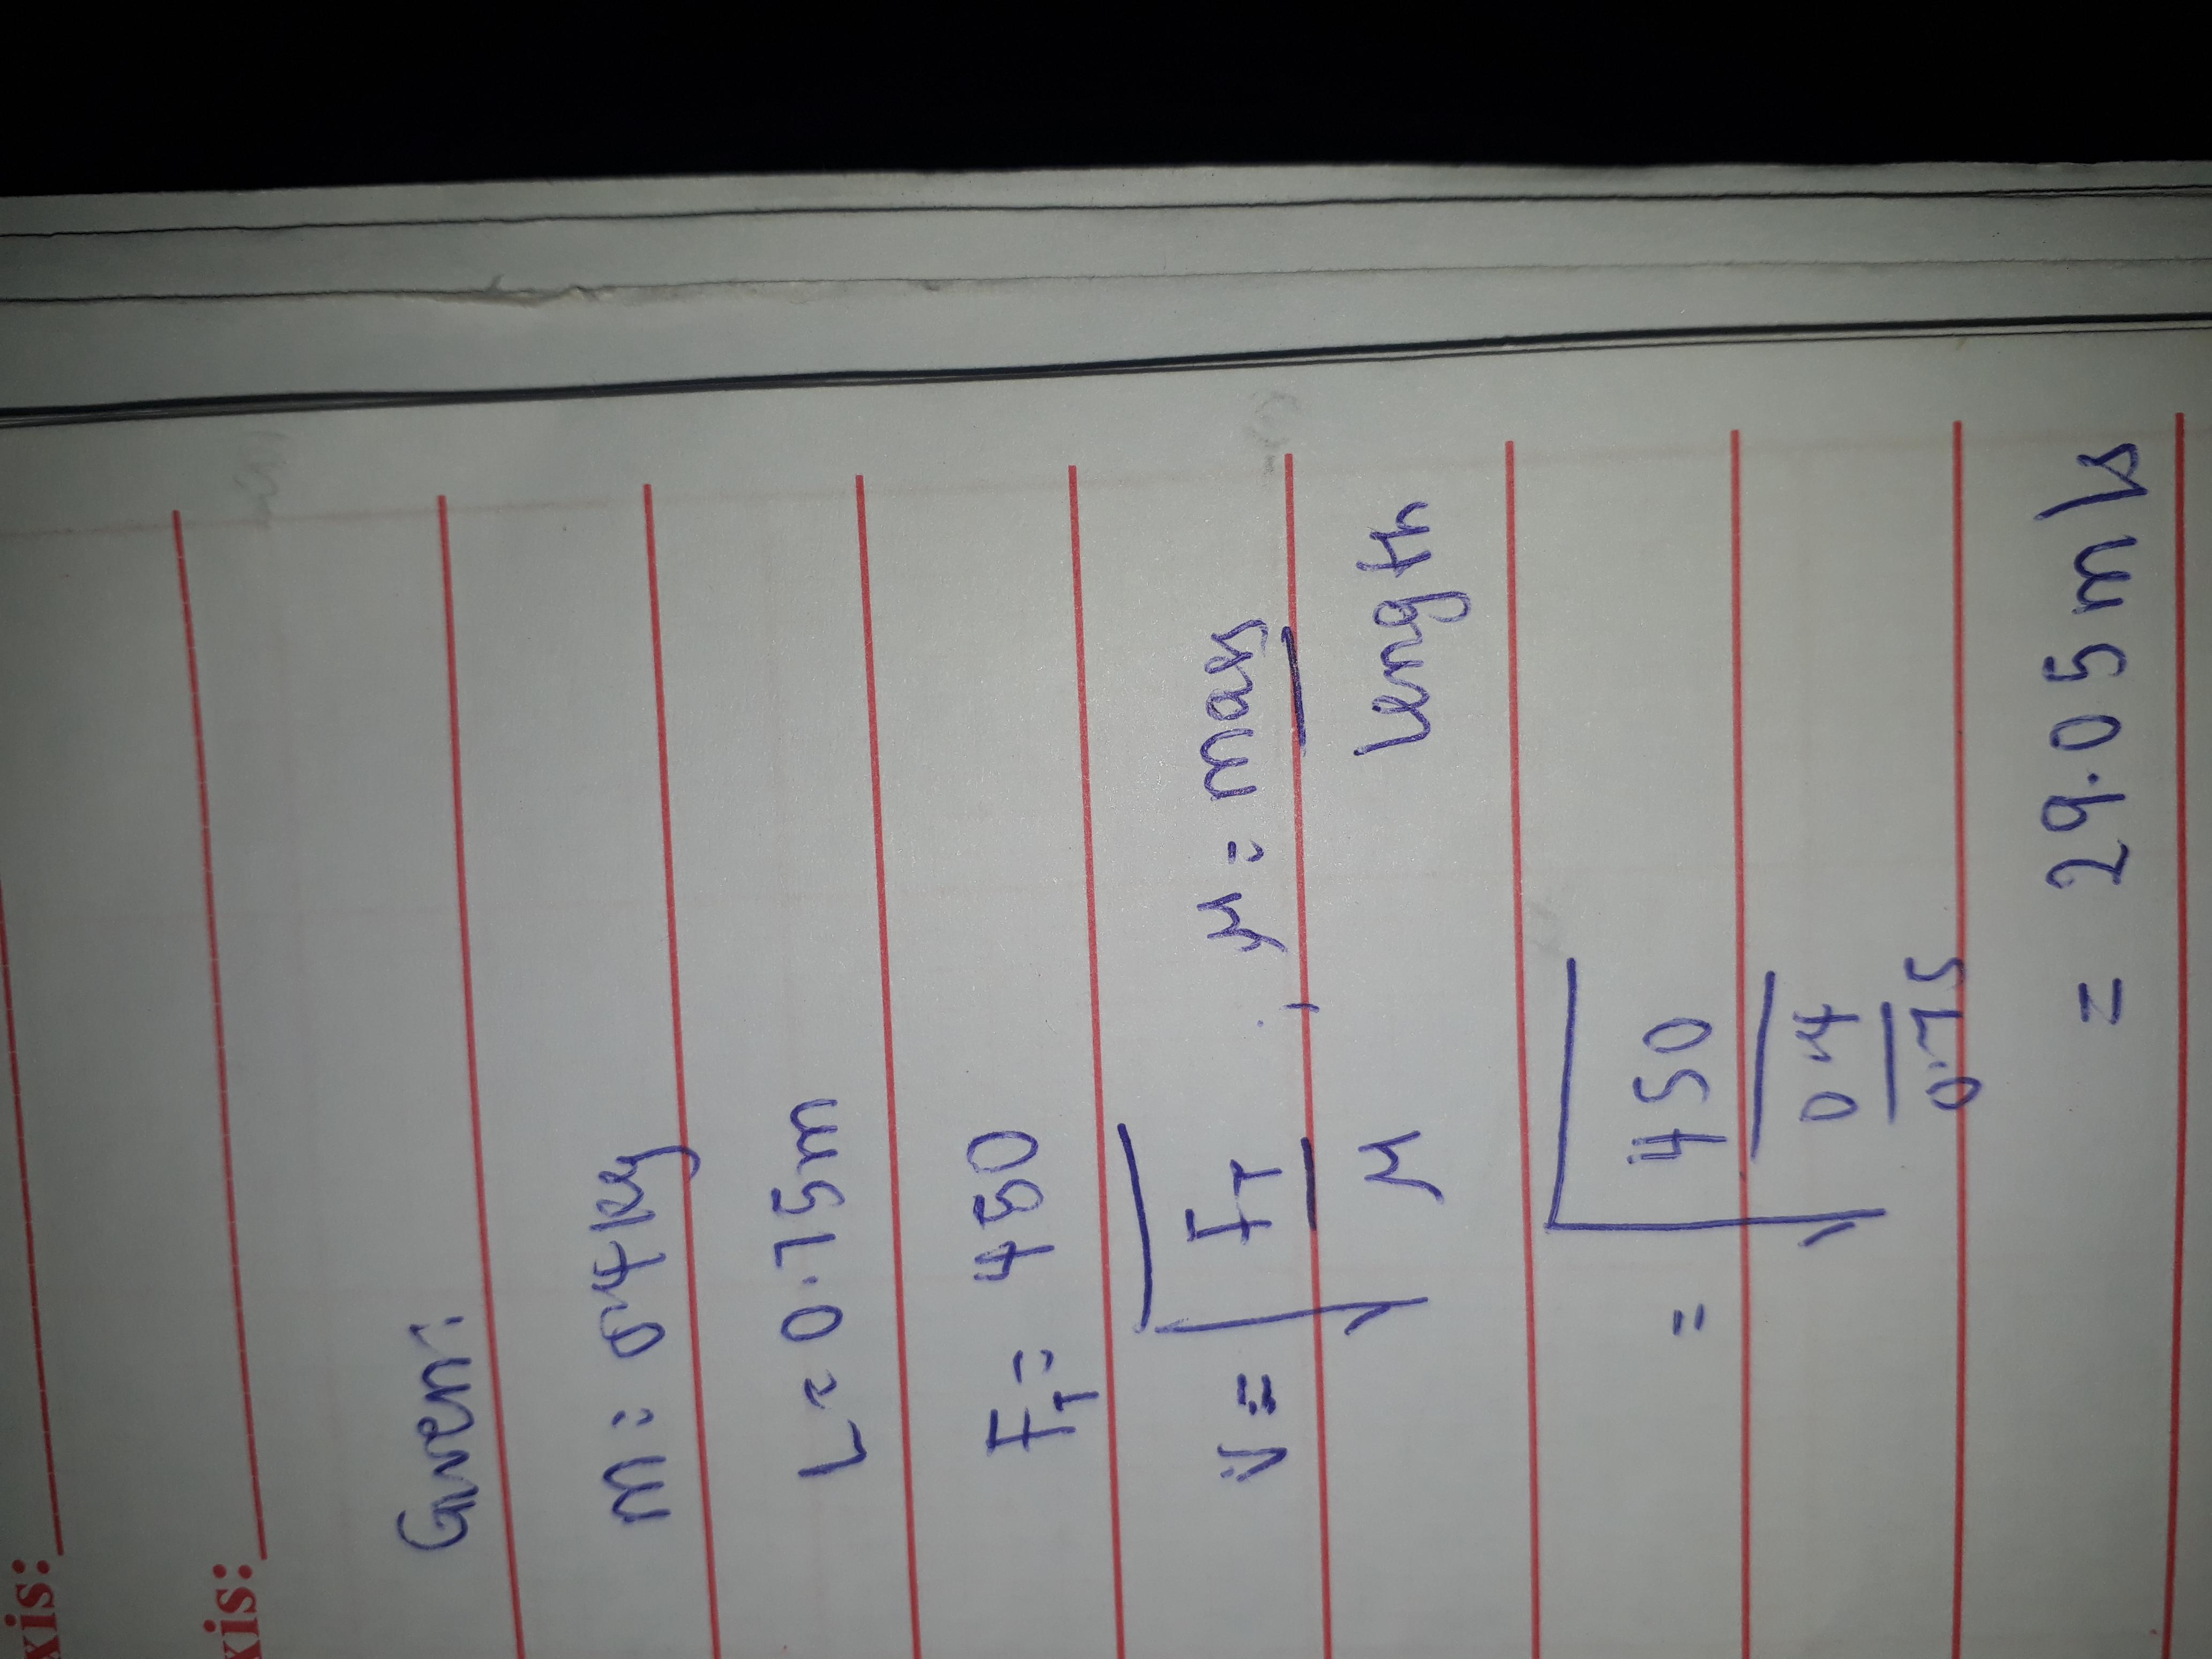 xis:
xis:
Given:
m = 0.4 kg
L = 0.75m
FT = 450
v = √FT/μ , μ = mass/length
= √450/0.4/0.75
= 29.05 m/s